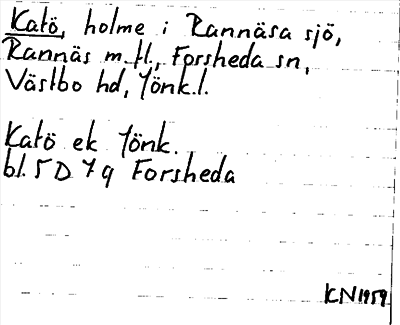 Katö, holme i Rannäsa sjö,
Rannäs m.fl., Forsheda sn,
Västbo hd, Jönk.l.
Katö ek Jönk.
bl. 5 D 7 q Forsheda
KN1959